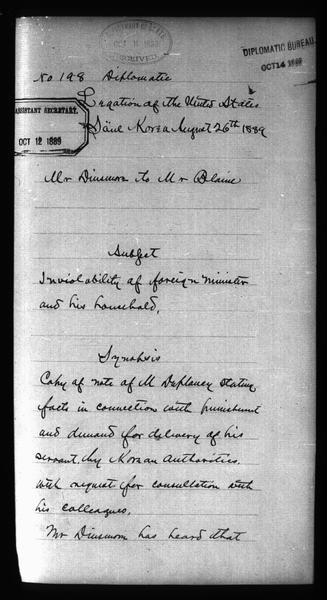 DEPARTMENT OF STATE
RECEIVED
DIPLOMATIC BUREAU
OCT 14 1889
No 198 Diplomatic
ASSISTANT SECRETARY,
OCT 12 1889
Legation of the United States
Söul Korea August 26th 1889
Mr Dinsmore to Mr Blaine
Subject
Inviolability of foreign minister
and his household.
Synopsis
Copy of note of M Deplancy stating
facts in connection with punishment
and demand for delivery of his
servant, by Korean authorities.
with request for consultation with
his colleagues.
Mr Dinsmore has heard that